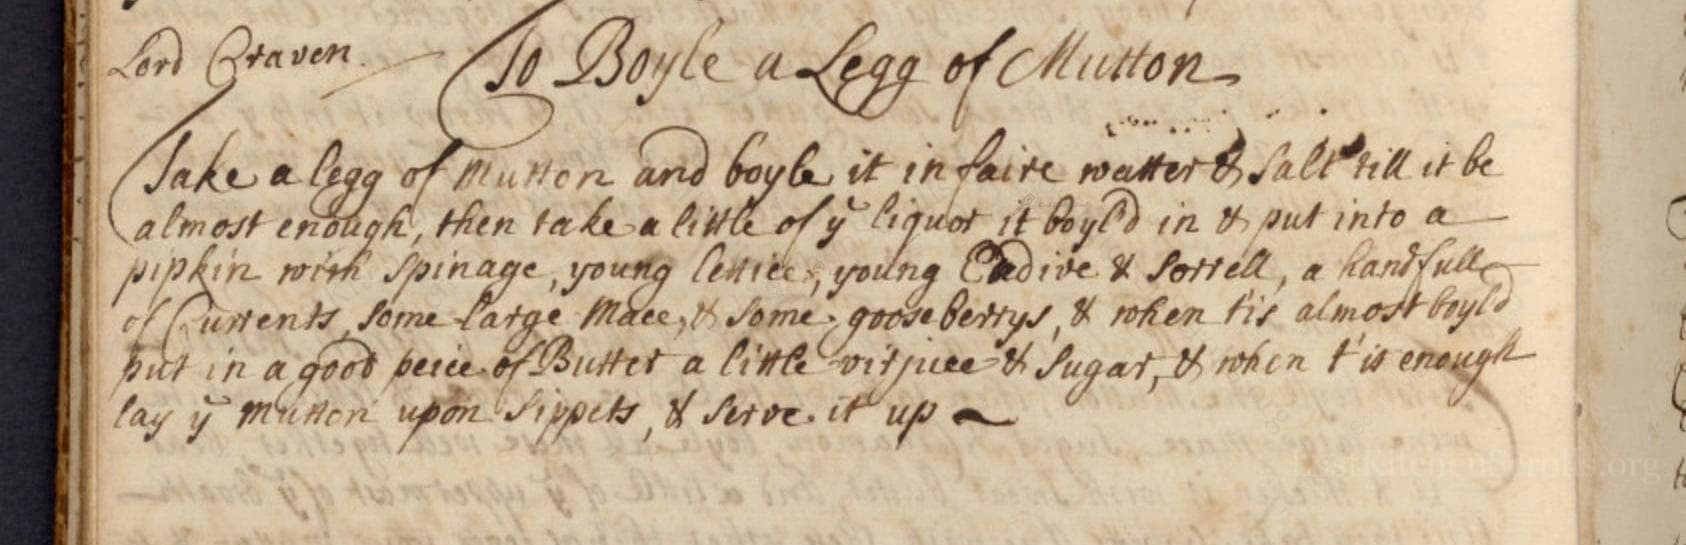 Lord Craven. To Boyle a Legg of Mutton
Take a legg of Mutton and boyle it in faire watter & Salt till it be
almost enough, then take a little of yͤ liquor it boyl'd in & put into a
pipkin with Spinage, young lettice, young Endive & Sorrell, a handfull
of Currents, Some large Mace, & Some gooseberrys, & when t'is almost boyl'd
put in a good peice of Butter a little virjuce & Sugar, & when t'is enough
lay yͤ Mutton upon Sippets, & Serve it up